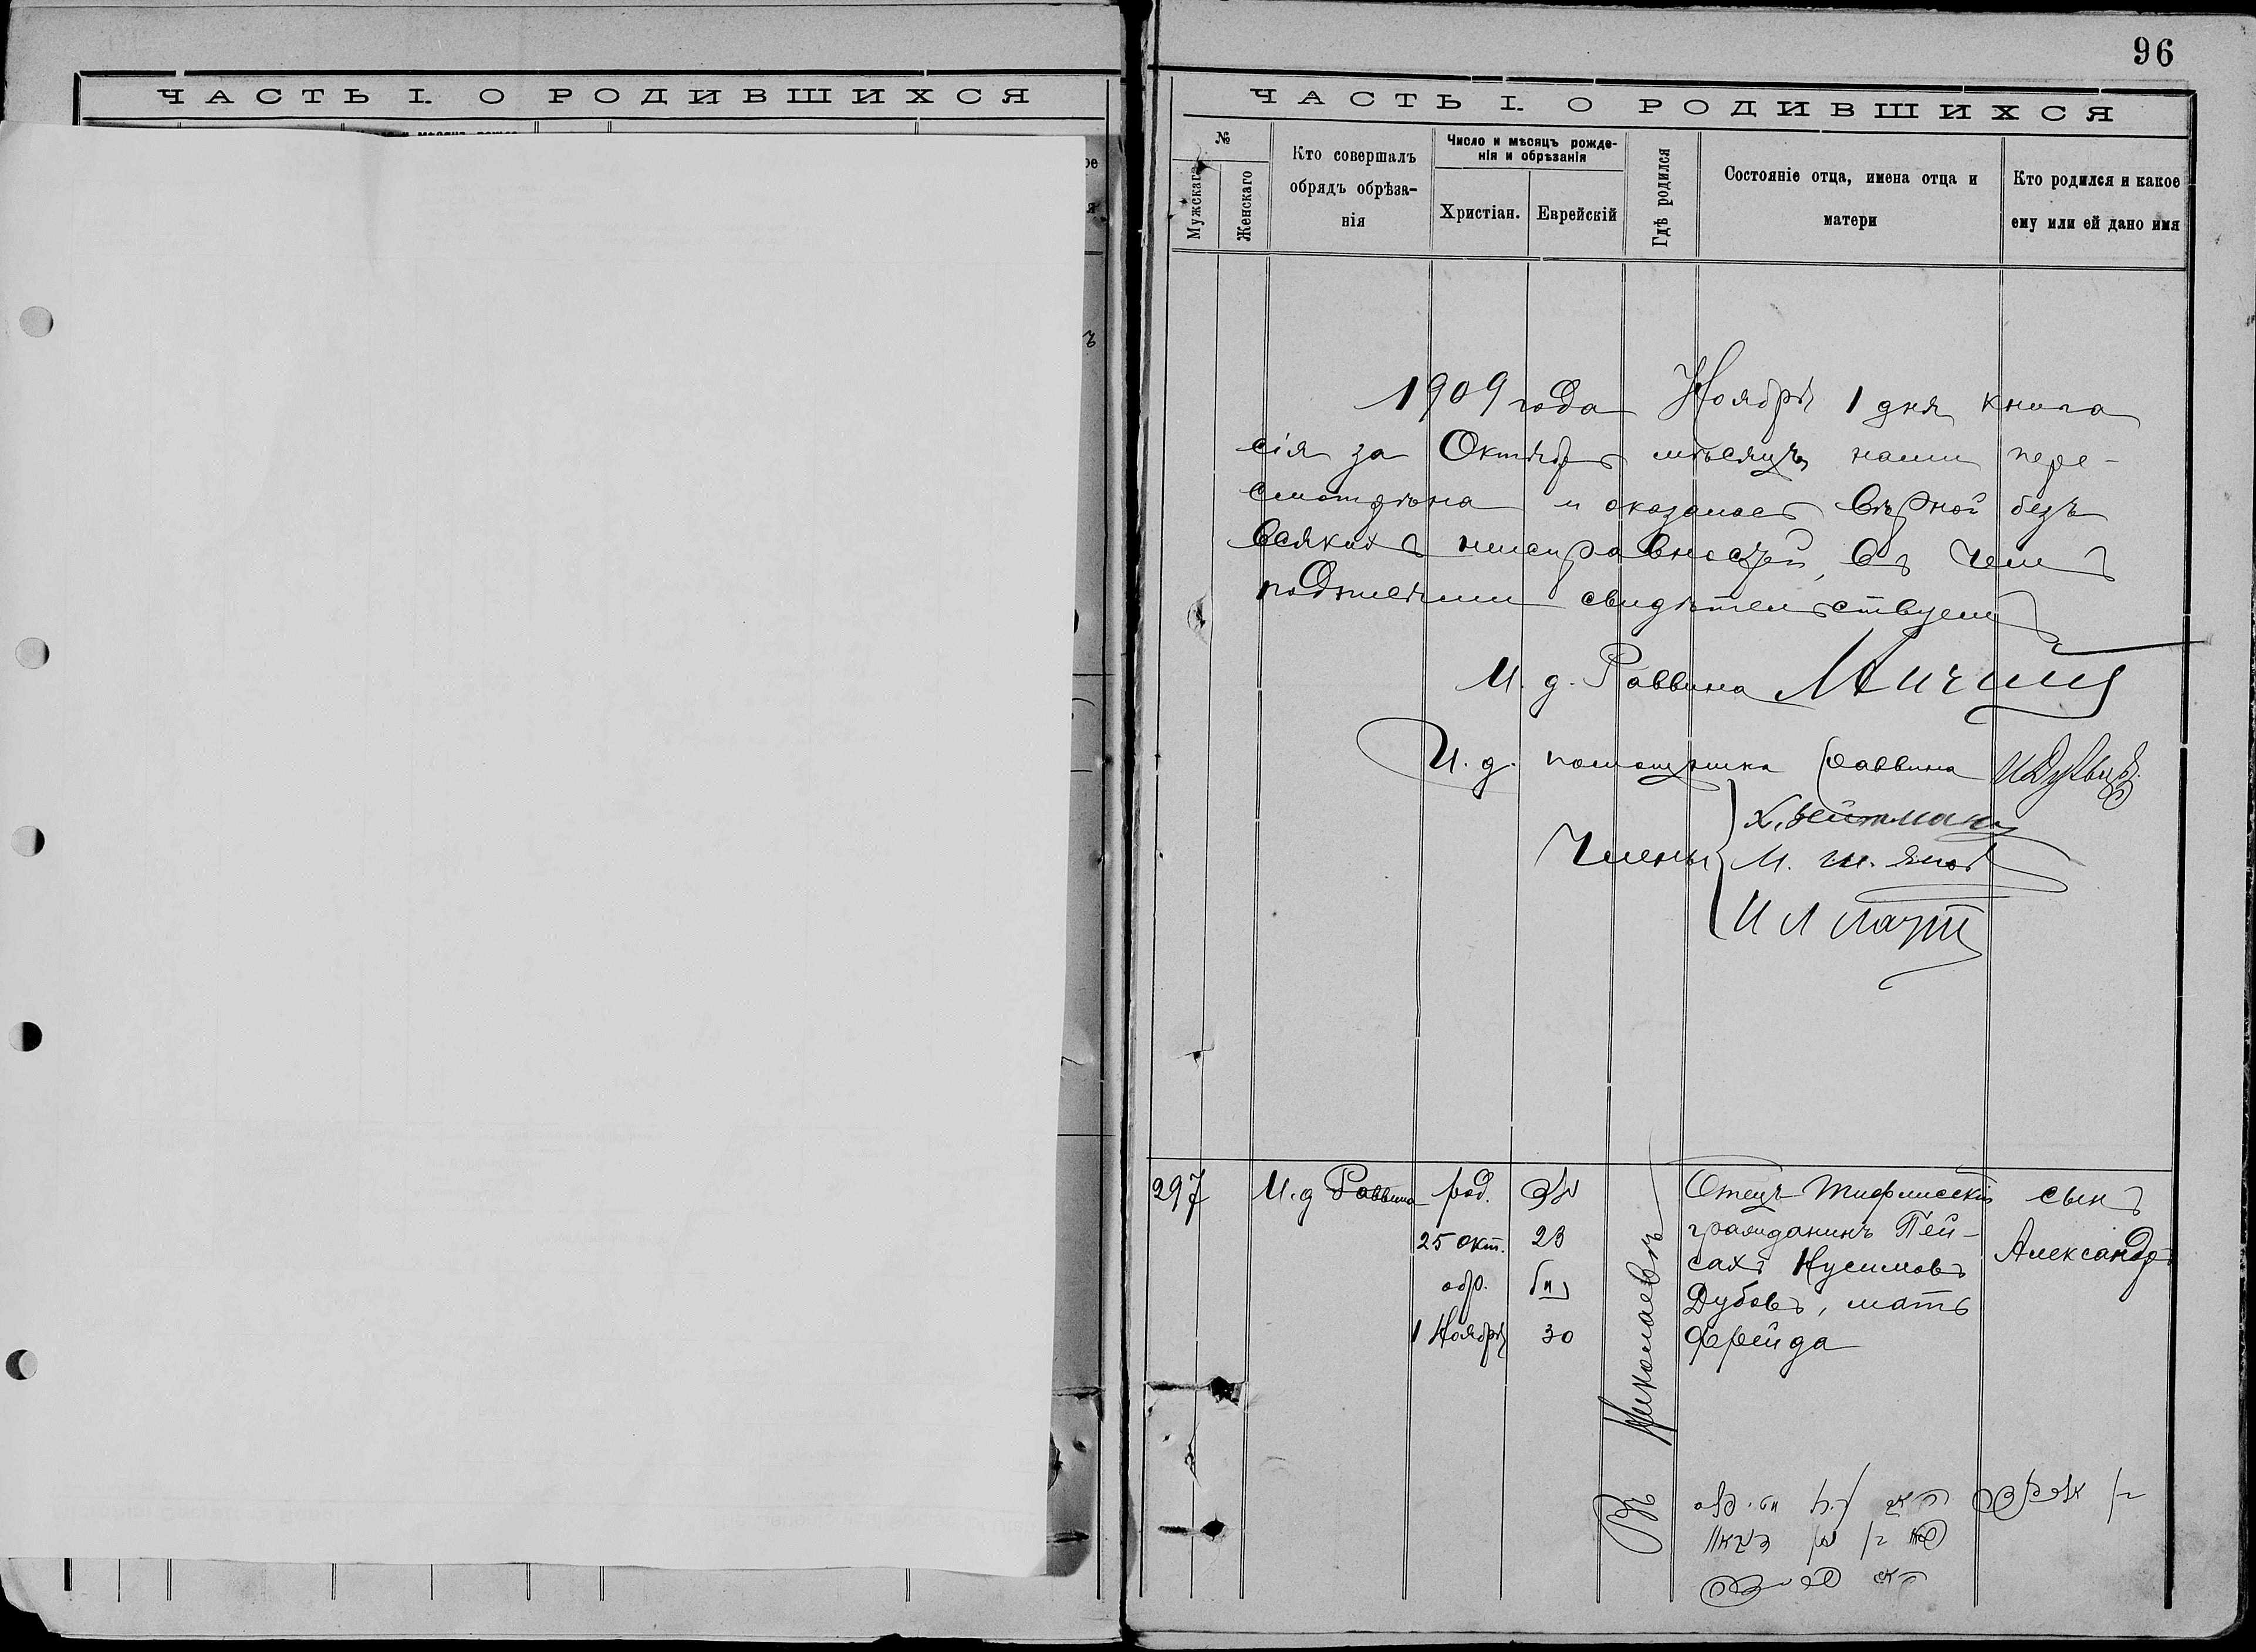 ЧАСТЬ I. О РОДИВШИХСЯ
96
ЧАСТЬ I. О РОДИВШИХСЯ
№
Мужскаго
Женскаго
Кто совершалъ
обрядъ обрѣза-
нія
Число и мѣсяцъ рожде-
нія и обрѣзанія
Христіан.
Еврейскій
Гдѣ родился
Состояніе отца, имена отца и
матери
Кто родился и какое
ему или ей дано имя
1909 года Ноября 1 дня книга
сія за Октябрь мѣсяцъ нами пере-
смотрѣна и оказалась вѣрной безъ
всякихъ неисправностей, въ чемъ
подписями свидѣтельствуемъ
И. д. Раввина
И. д. помощника раввина
Члены
Х. Вейтманъ
М. Ш.
И Л
297
И. д Раввина
род.
25 окт.
обр.
1 Ноября
23
30
Въ Николаевѣ
Отецъ Тифлисскій
гражданинъ Пей-
сахъ Нусимовъ
Дубовъ, мать
Фрейда
сынъ
Александръ